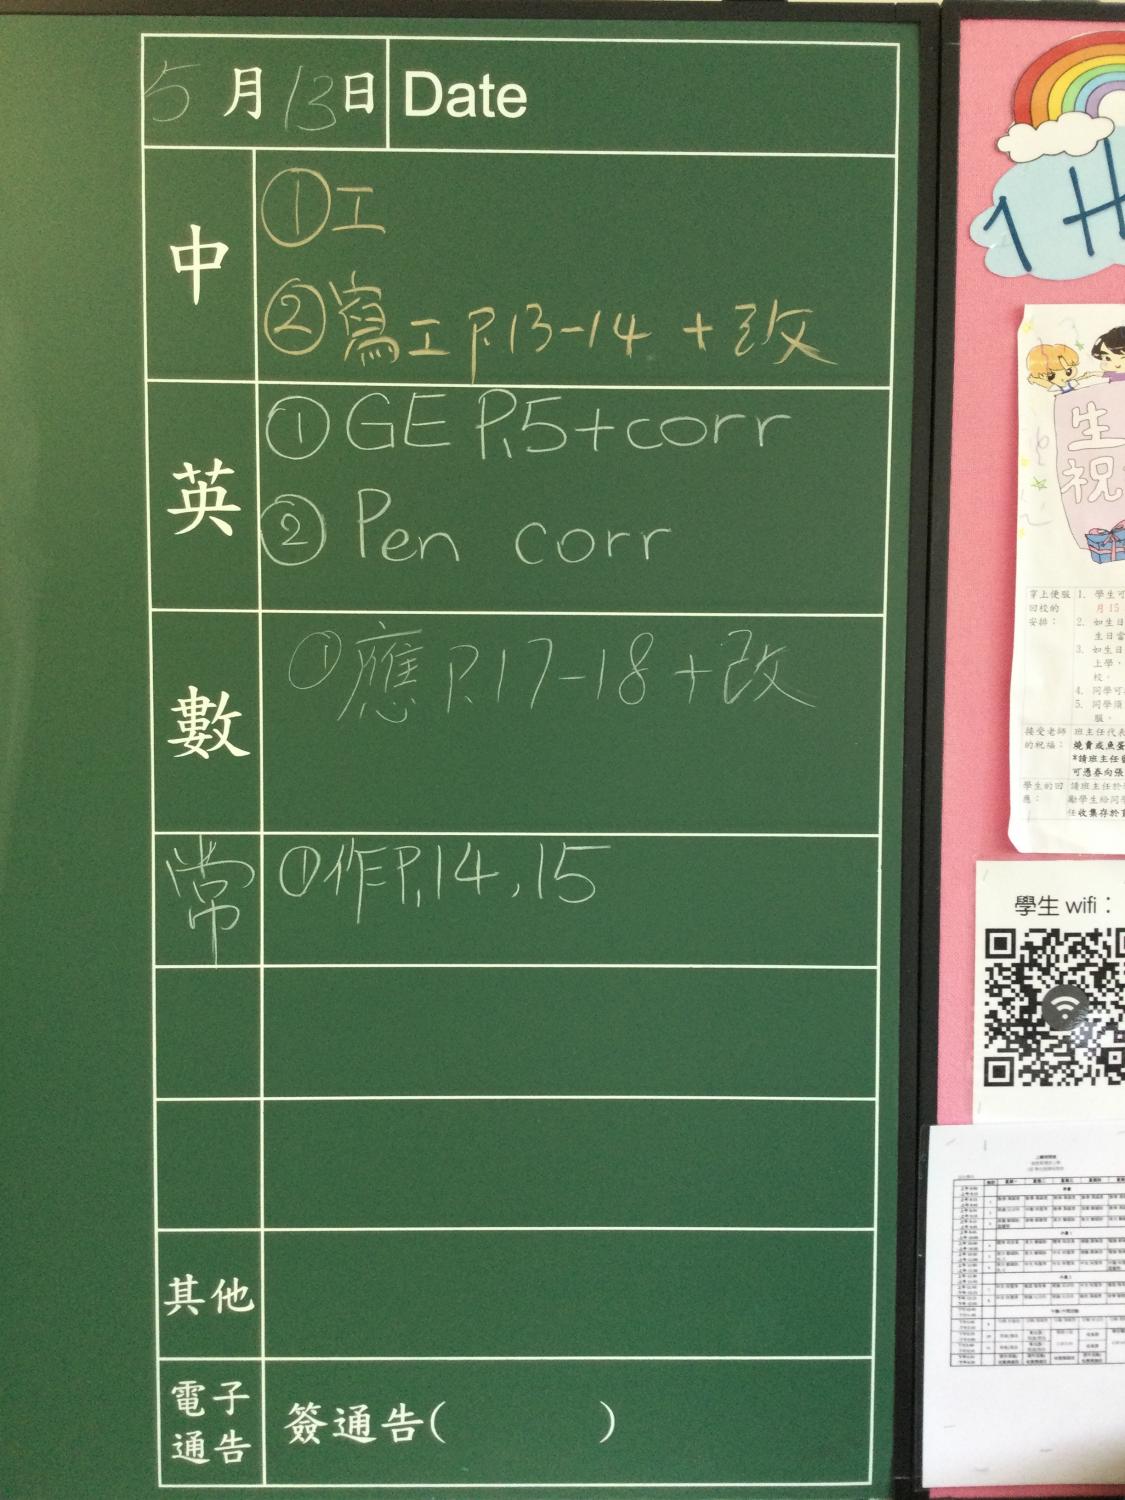 5月13日 Date
中
①工
②寫工P.13-14 +改
英
①GE P.5+corr
②Pen corr
數
①應P.17-18+改
常
①作P.14,15
其他
電子
通告
簽通告( )
1 H
生
祝
穿上便服
回校的
安排：
1. 學生可
月15
2. 如生日
生日當
3. 如生日
上學，
校。
4. 同學可
5. 同學須
服。
接受老師
的祝福：
班主任代表
燒賣或魚蛋
*請班主任
可憑券向張
學生的回
應：
請班主任於
勵學生給同
任收集存於
學生 wifi：